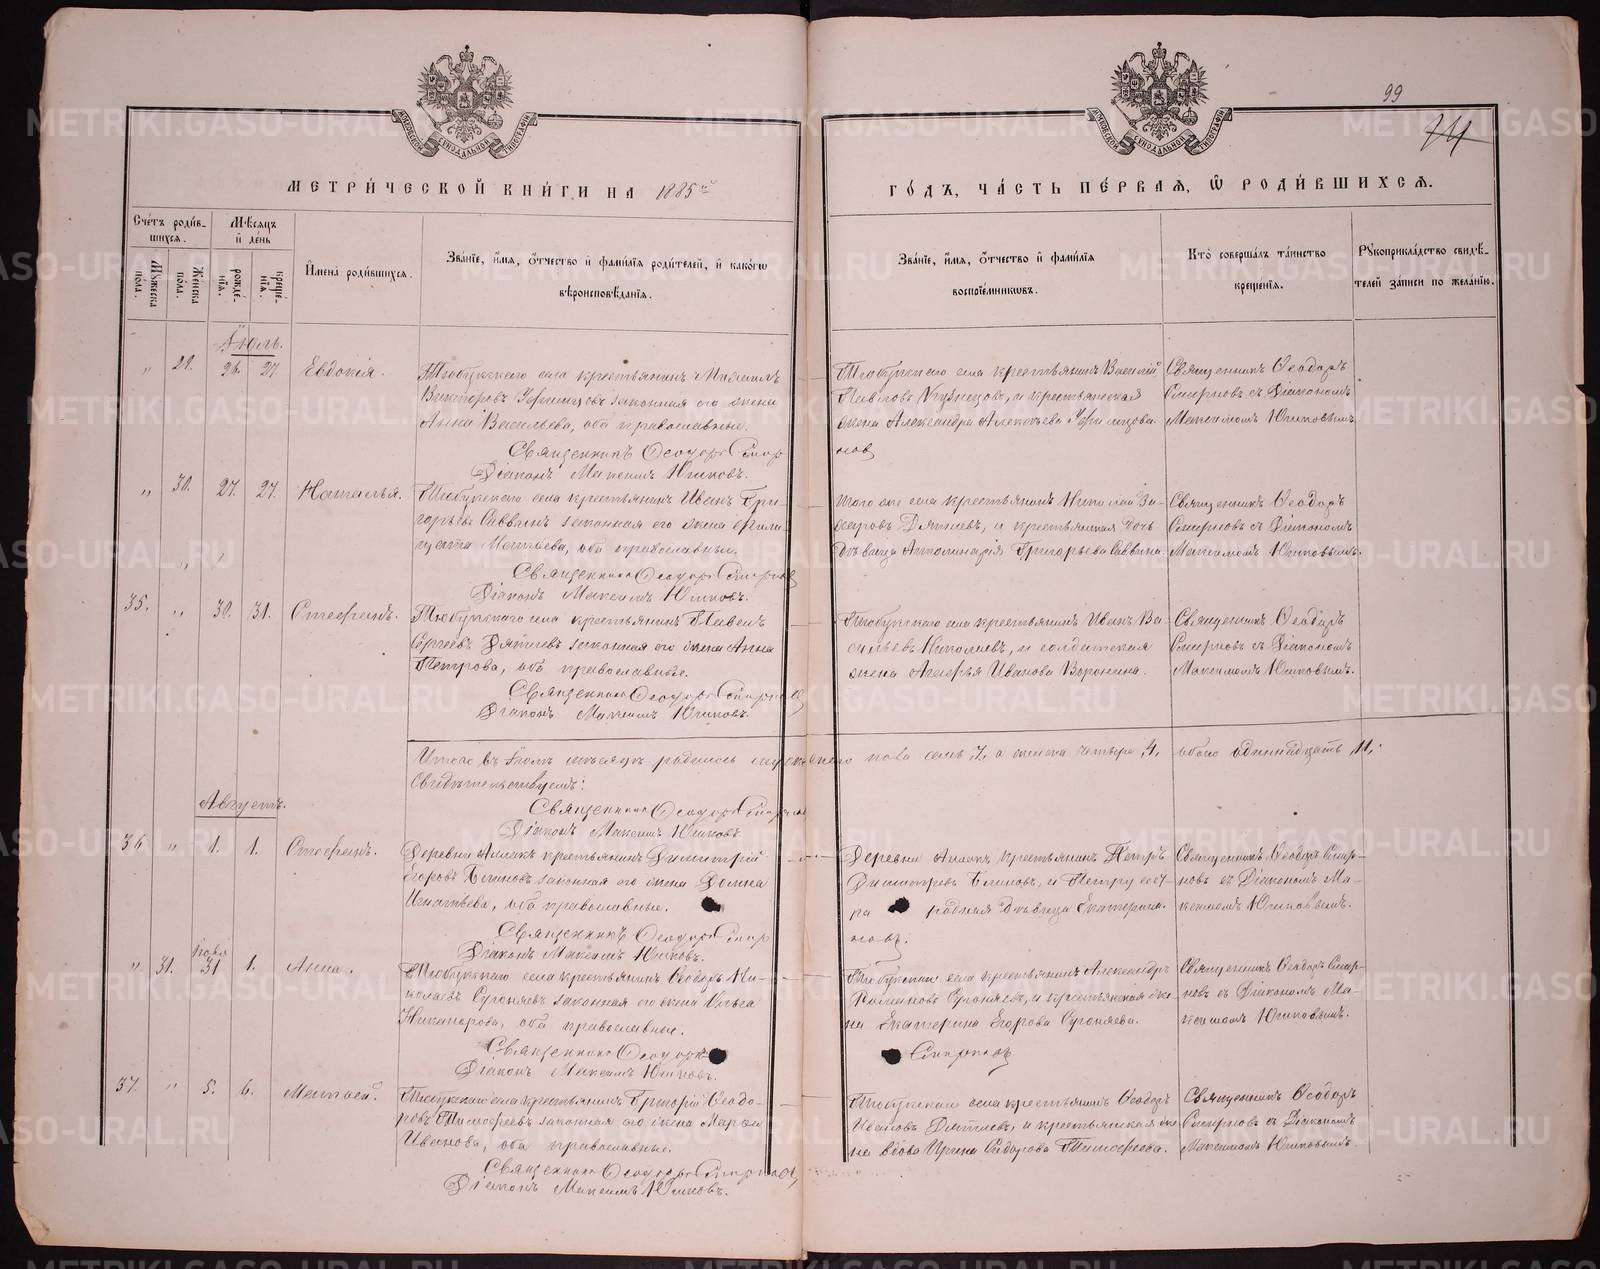 99
74
МЕТРИ́ЧЕСКОЙ КНИ́ГИ НА 1885й
ГО́ДЪ, ЧА́СТЬ ПЕ́РВАЯ, Ѡ РОДИ́ВШИХСЯ.
Сче́тъ роди́в-
шихся.
Мѣ́сяцъ
и́ де́нь
Му́жеска
по́ла.
Же́нска
по́ла.
рожде́-
нїя.
креще́-
нїя.
И́мена роди́вшихся.
Зва́нїе, и́мя, о́тчество и́ фами́лїя роди́телей, и́ како́гѡ
вѣроисповѣ́данїя.
Зва́нїе, и́мя, о́тчество и́ фами́лїя
воспрїе́мникѡвъ.
Кто̀ соверша́лъ та́инство
креще́нїя.
Рꙋкоприкла́дство свидѣ́-
телей за́писи по жела́нїю.
Іюль.
" 29. 26. 27. Евдокія.
Тюбукскаго села крестьянинъ Михаилъ
Викторовъ законная его жена
Анна Васильева, оба православные.
Священникъ Ѳеодоръ Смирнов
Діаконъ Максимъ Юшковъ.
Тюбукскаго села крестьянинъ Василій
Павловъ Кузнецов, и крестьянская
жена Александра Алексѣева
Священникъ Ѳеодоръ
Смирновъ съ Діакономъ
Максимомъ Юшковымъ.
" 30. 27. 27. Наталья.
Тюбукскаго села крестьянинъ Иванъ Гри-
горьевъ Саввинъ законная его жена
Матвѣева, оба православные.
Священникъ Ѳеодоръ Смирнов
Діаконъ Максимъ Юшковъ.
того же села крестьянинъ Николай
Дятлев, и крестьянская дочь
дѣвица Григорьева Саввина.
Священникъ Ѳеодоръ
Смирновъ съ Діакономъ
Максимомъ Юшковымъ.
35. " 30. 31. Стефанъ.
Тюбукскаго села крестьянинъ Павелъ
Сергѣевъ Дятлевъ законная его жена Анна
Петрова, оба православные.
Священникъ Ѳеодоръ Смирнов
Діаконъ Максимъ Юшковъ.
Тюбукскаго села крестьянинъ Иванъ Ва-
сильевъ Николаев, и солдатская
жена Агафья Иванова Воронина.
Священникъ Ѳеодоръ
Смирновъ съ Діакономъ
Максимомъ Юшковымъ.
Итого въ Іюлѣ мѣсяцѣ родилось мужескаго пола семь 7, а женска четыре 4, обоего одиннадцать 11.
Свидѣтельствуемъ:
Священникъ Ѳеодоръ Смирнов
Діаконъ Максимъ Юшковъ.
Августъ.
36. " 1. 1. Стефанъ.
Деревни крестьянинъ Димитрій
Егоровъ законная его жена Домна
Игнатьева, оба православные.
Священникъ Ѳеодоръ Смирнов
Діаконъ Максимъ Юшковъ.
Деревни крестьянинъ Петръ
Димитріевъ
дѣвица Екатерина.
Священникъ Ѳеодоръ Смир-
новъ съ Діакономъ Ма-
ксимомъ Юшковымъ.
іюля
" 31. 31 1. Анна.
Тюбукскаго села крестьянинъ Ѳеодоръ Ни-
колаевъ Сугоняевъ законная его жена
Никанорова, оба православные.
Священникъ Ѳеодоръ
Діаконъ Максимъ Юшковъ.
Тюбукскаго села крестьянинъ Александръ
Сугоняевъ, и крестьянская же-
на Екатерина Егорова Сугоняева.
Смирнов
Священникъ Ѳеодоръ Смир-
новъ съ Діакономъ Ма-
ксимомъ Юшковымъ.
37. " 5. 6. Матвѣй.
Тюбукскаго села крестьянинъ Григорій Ѳеодо-
ровъ Тимоѳеевъ законная его жена Марѳа
Иванова, оба православные.
Священникъ Ѳеодоръ Смирнов
Діаконъ Максимъ Юшковъ.
Тюбукскаго села крестьянинъ Ѳеодоръ
Ивановъ Дятлевъ, и крестьянская же-
на вдова Ирина Сидорова Тимоѳеева.
Священникъ Ѳеодоръ
Смирновъ съ Діакономъ
Максимомъ Юшковымъ.
METRIKI.GASO-URAL.RU